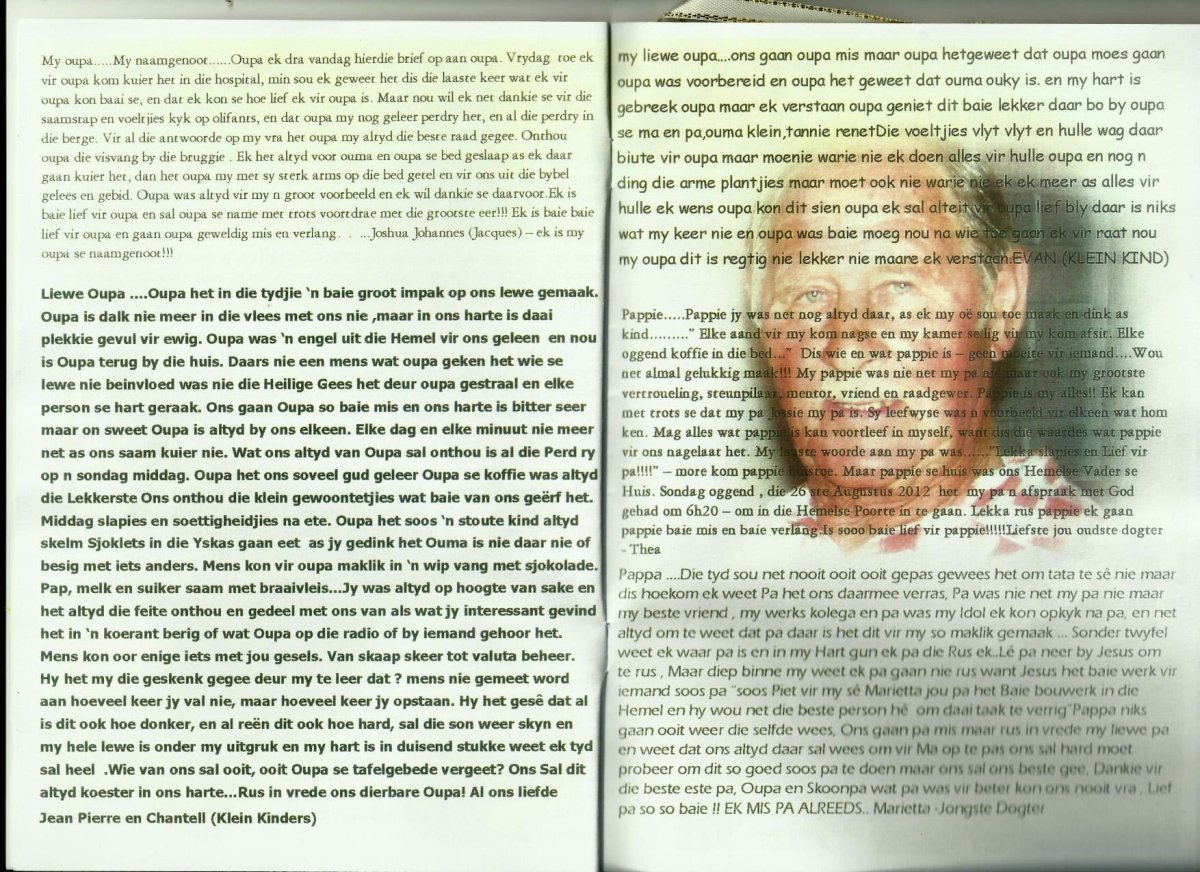 My oupa.....My naamgenoot......Oupa ek dra vandag hierdie brief op aan oupa. Vrydag toe ek
vir oupa kom kuier het in die hospital, min sou ek geweet het dis die laaste keer wat ek vir
oupa kon baai se, en dat ek kon se hoe lief ek vir oupa is. Maar nou wil ek net dankie se vir die
saamstap en voeltjies kyk op olifants, en dat oupa my nog geleer perdry het, en al die perdry in
die berge. Vir al die antwoorde op my vra het oupa my altyd die beste raad gegee. Onthou
oupa die visvang by die bruggie . Ek het altyd voor ouma en oupa se bed geslaap as ek daar
gaan kuier het, dan het oupa my met sy sterk arms op die bed getel en vir ons uit die bybel
gelees en gebid. Oupa was altyd vir my n groot voorbeeld en ek wil dankie se daarvoor.Ek is
baie lief vir oupa en sal oupa se name met trots voortdrae met die grootste eer!!! Ek is baie baie
lief vir oupa en gaan oupa geweldig mis en verlang. . ...Joshua Johannes (Jacques) – ek is my
oupa se naamgenoot!!!
Liewe Oupa ....Oupa het in die tydjie 'n baie groot impak op ons lewe gemaak.
Oupa is dalk nie meer in die vlees met ons nie ,maar in ons harte is daai
plekkie gevul vir ewig. Oupa was 'n engel uit die Hemel vir ons geleen en nou
is Oupa terug by die huis. Daars nie een mens wat oupa geken het wie se
lewe nie beinvloed was nie die Heilige Gees het deur oupa gestraal en elke
person se hart geraak. Ons gaan Oupa so baie mis en ons harte is bitter seer
maar on sweet Oupa is altyd by ons elkeen. Elke dag en elke minuut nie meer
net as ons saam kuier nie. Wat ons altyd van Oupa sal onthou is al die Perd ry
op n sondag middag. Oupa het ons soveel gud geleer Oupa se koffie was altyd
die Lekkerste Ons onthou die klein gewoontetjies wat baie van ons geërf het.
Middag slapies en soettigheidjies na ete. Oupa het soos 'n stoute kind altyd
skelm Sjoklets in die Yskas gaan eet as jy gedink het Ouma is nie daar nie of
besig met iets anders. Mens kon vir oupa maklik in 'n wip vang met sjokolade.
Pap, melk en suiker saam met braaivleis...Jy was altyd op hoogte van sake en
het altyd die feite onthou en gedeel met ons van als wat jy interessant gevind
het in 'n koerant berig of wat Oupa op die radio of by iemand gehoor het.
Mens kon oor enige iets met jou gesels. Van skaap skeer tot valuta beheer.
Hy het my die geskenk gegee deur my te leer dat ? mens nie gemeet word
aan hoeveel keer jy val nie, maar hoeveel keer jy opstaan. Hy het gesê dat al
is dit ook hoe donker, en al reën dit ook hoe hard, sal die son weer skyn en
my hele lewe is onder my uitgruk en my hart is in duisend stukke weet ek tyd
sal heel .Wie van ons sal ooit, ooit Oupa se tafelgebede vergeet? Ons Sal dit
altyd koester in ons harte...Rus in vrede ons dierbare Oupa! Al ons liefde
Jean Pierre en Chantell (Klein Kinders)
my liewe oupa....ons gaan oupa mis maar oupa hetgeweet dat oupa moes gaan
oupa was voorbereid en oupa het geweet dat ouma ouky is. en my hart is
gebreek oupa maar ek verstaan oupa geniet dit baie lekker daar bo by oupa
se ma en pa,ouma klein,tannie renetDie voeltjies vlyt vlyt en hulle wag daar
biute vir oupa maar moenie warie nie ek doen alles vir hulle oupa en nog n
ding die arme plantjies maar moet ook nie warie nie ek ek meer as alles vir
hulle ek wens oupa kon dit sien oupa ek sal alteit vir oupa lief bly daar is niks
wat my keer nie en oupa was baie moeg nou na wie toe gaan ek vir raat nou
my oupa dit is regtig nie lekker nie maare ek verstaan.EVAN (KLEIN KIND)
Pappie.....Pappie jy was net nog altyd daar, as ek my oë sou toe maak en dink as
kind........." Elke aand vir my kom nagse en my kamer seilig vir my kom afsit. Elke
oggend koffie in die bed..." Dis wie en wat pappie is – geen moeite vir iemand....Wou
net almal gelukkig maak!!! My pappie was nie net my pa nie maar ook my grootste
vertroueling, steunpilaar, mentor, vriend en raadgewer. Pappie is my alles!! Ek kan
met trots se dat my pa Jossie my pa is. Sy leefwyse was n voorbeeld vir elkeen wat hom
ken. Mag alles wat pappie is kan voortleef in myself, want dis die waardes wat pappie
vir ons nagelaat het. My laaste woorde aan my pa was......"Lekka slapies en Lief vir
pa!!!!" – more kom pappie huistoe. Maar pappie se huis was ons Hemelse Vader se
Huis. Sondag oggend , die 26 ste Augustus 2012 het my pa n afspraak met God
gehad om 6h20 – om in die Hemelse Poorte in te gaan. Lekka rus pappie ek gaan
pappie baie mis en baie verlang.Is sooo baie lief vir pappie!!!!!Liefste jou oudste dogter
- Thea
Pappa ....Die tyd sou net nooit ooit ooit gepas gewees het om tata te sê nie maar
dis hoekom ek weet Pa het ons daarmee verras, Pa was nie net my pa nie maar
my beste vriend , my werks kolega en pa was my Idol ek kon opkyk na pa, en net
altyd om te weet dat pa daar is het dit vir my so maklik gemaak ... Sonder twyfel
weet ek waar pa is en in my Hart gun ek pa die Rus ek..Lê pa neer by Jesus om
te rus , Maar diep binne my weet ek pa gaan nie rus want Jesus het baie werk vir
iemand soos pa "soos Piet vir my sê Marietta jou pa het Baie bouwerk in die
Hemel en hy wou net die beste person hê om daai taak te verrig"Pappa niks
gaan ooit weer die selfde wees, Ons gaan pa mis maar rus in vrede my liewe pa
en weet dat ons altyd daar sal wees om vir Ma op te pas ons sal hard moet
probeer om dit so goed soos pa te doen maar ons sal ons beste gee, Dankie vir
die beste este pa, Oupa en Skoonpa wat pa was vir beter kon ons nooit vra , Lief
pa so so baie !! EK MIS PA ALREEDS.. Marietta -Jongste Dogter